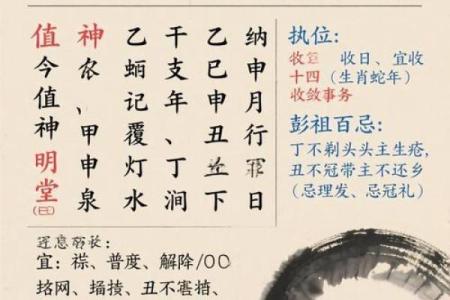 纳申月行日
乙巳申丑下
干支年、丁涧
乙蛃记覆灯水
神、甲申泉
值今值神明堂(日)
执位:
收 收日、宜收
十四(生肖蛇年)
收敛事务
彭祖百忌:
丁不剃头头主生疮,
丑不冠带主不还乡
(忌理发、忌冠礼)
宜:、普度、解除/OO
网、、丑不、